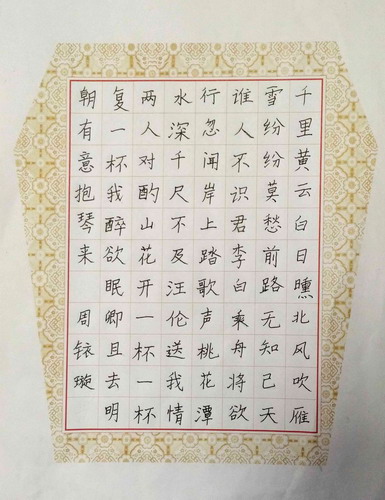 千里黄云白日曛北风吹雁
雪纷纷莫愁前路无知己天
谁人不识君李白乘舟将欲
行忽闻岸上踏歌声桃花潭
水深千尺不及汪伦送我情
两人对酌山花开一杯一杯
复一杯我醉欲眠卿且去明
朝有意抱琴来 周铱璇